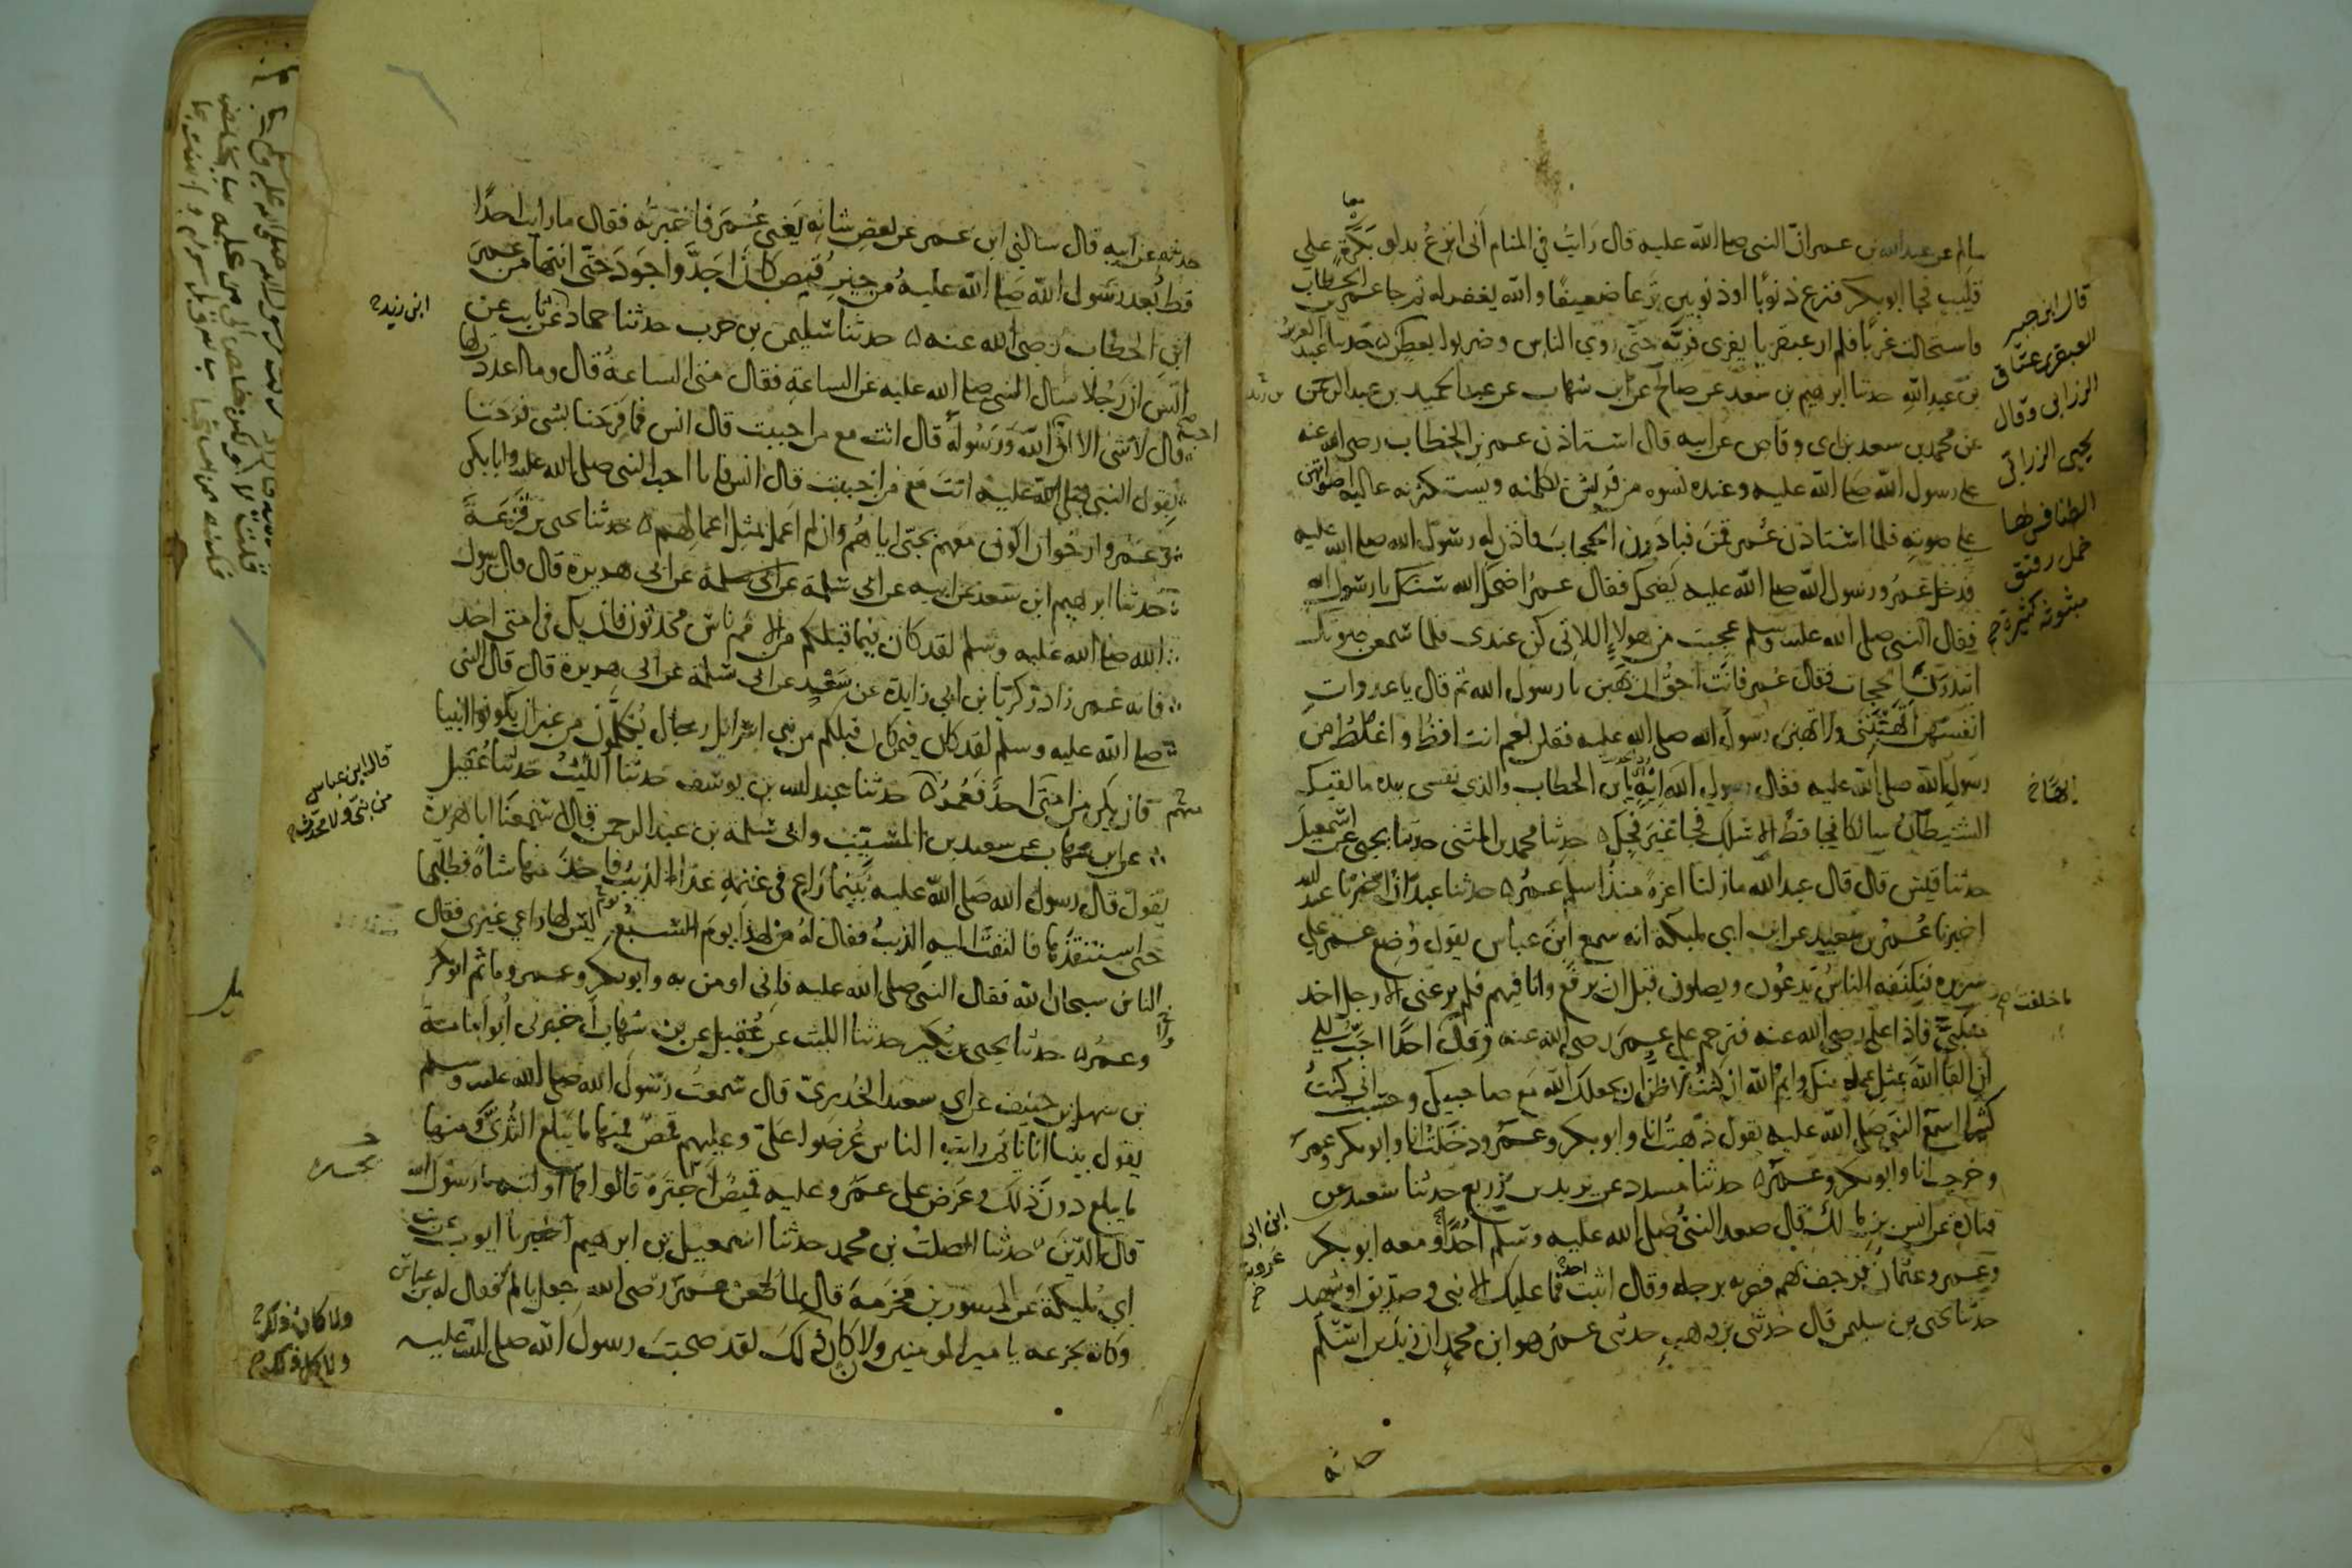 سالم عن عبد الله بن عمر ان النبي صلى الله عليه قال رايت في المنام اني انزع بدلو بكرة على
قليب فجا ابو بكر فنزع ذنوبا او ذنوبين نزعا ضعيفا والله يغفر له ثم جا عمر بن الخطاب
فاستحالت غربا فلم ار عبقريا يفري فريه حتى روي الناس وضربوا بعطن حدثنا عبد العزيز
بن عبد الله حدثنا ابرهيم بن سعد عن صالح عن ابن شهاب عن عبد الحميد بن عبد الرحمن
عن محمد بن سعد بن ابي وقاص عن ابيه قال استاذن عمر بن الخطاب رضي الله عنه
على رسول الله صلى الله عليه وعنده نسوه من قريش يكلمنه ويستكثرنه عاليه اصواتهن
على صوته فلما استاذن عمر قمن فبادرن الحجاب فاذن له رسول الله صلى الله عليه
فدخل عمر ورسول الله صلى الله عليه يضحك فقال عمر اضحك الله سنك يا رسول الله
فقال النبي صلى الله عليه وسلم عجبت من هولاء اللاتي كن عندي فلما سمعن صوتك
ابتدرن الحجاب فقال عمر فانت احق ان يهبن يا رسول الله ثم قال يا عدوات
انفسهن اتهبنني ولا تهبن رسول الله صلى الله عليه فقلن نعم انت افظ واغلظ من
رسول الله صلى الله عليه فقال رسول الله ايه يا بن الخطاب والذي نفسي بيده ما لقيك
الشيطان سالكا فجا قط الا سلك فجا غير فجك حدثنا محمد بن المثنى حدثنا يحيى عن اسمعيل
حدثنا قيس قال قال عبد الله مازلنا اعزة منذ اسلم عمر حدثنا عبدان اخبرنا عبد الله
اخبرنا عمر بن سعيد عن ابن ابي مليكة انه سمع ابن عباس يقول وضع عمر على
سريره فتكنفه الناس يدعون ويصلون قبل ان يرفع وانا فيهم فلم يرعني الا رجل اخذ
منكبي فاذا علي رضي الله عنه فترحم على عمر رضي الله عنه وقال احدا احب الي
ان القا الله بمثل عمله منك وايم الله ان كنت لاظن ان يجعلك الله مع صاحبيك وحسبت اني كنت
كثيرا اسمع النبي صلى الله عليه يقول ذهبت انا وابو بكر وعمر ودخلت انا وابو بكر وعمر
وخرجت انا وابو بكر وعمر حدثنا مسدد عن يزيد بن زريع حدثنا سعيد عن
قتادة عن انس بن مالك قال صعد النبي صلى الله عليه وسلم احدا ومعه ابو بكر
وعمر وعثمان فرجف بهم فضربه برجله وقال اثبت احد فما عليك الا نبي وصديق او شهيد
حدثنا يحيى بن سليمن قال حدثني بن وهب حدثني عمر هو ابن محمد ان زيد بن اسلم
قال ابن جبير
العبقري عتاق
الزرابي وقال
يحيى الزرابي
الطنافس لها
خمل رقيق
مبثوثة كثيرة
ما خلفت
ابن ابي
عروبة
حدثه
حدثه عن ابيه قال سالني ابن عمر عن بعض شانه يعني عمر فاخبرته فقال ما رايت احدا
قط بعد رسول الله صلى الله عليه من حين قبض كان اجد واجود حتى انتها من عمر
ابن الخطاب رضي الله عنه حدثنا سليمن بن حرب حدثنا حماد عن ثابت عن
انس ان رجلا سال النبي صلى الله عليه عن الساعة فقال متى الساعة قال وما اعددت لها
قال لا شي الا اني احب الله ورسوله قال انت مع من احببت قال انس فما فرحنا بشي فرحنا
بقول النبي صلى الله عليه انت مع من احببت قال انس فانا احب النبي صلى الله عليه وابا بكر
وعمر وارجوا ان اكون معهم بحبي اياهم وان لم اعمل بمثل اعمالهم حدثنا يحيى بن قزعة
حدثنا ابرهيم ابن سعد عن ابيه عن ابي سلمة عن ابي هريرة قال قال رسول
الله صلى الله عليه وسلم لقد كان فيما قبلكم من الامم ناس محدثون فان يك في امتي احد
فانه عمر زاد زكريا بن ابي زايدة عن سعد عن ابي سلمة عن ابي هريرة قال قال النبي
صلى الله عليه وسلم لقد كان فيمن كان قبلكم من بني اسرائيل رجال يكلمون من غير ان يكونوا انبيا
فان يكن من امتي احد فعمر حدثنا عبد الله بن يوسف حدثنا الليث حدثنا عقيل
عن ابن شهاب عن سعيد بن المسيب وابي سلمة بن عبد الرحمن قالا سمعنا ابا هريرة
يقول قال رسول الله صلى الله عليه بينما راع في غنمه عدا الذيب فاخذ منها شاة فطلبها
حتى استنقذها فالتفت اليه الذيب فقال له من لها يوم السبع يوم ليس لها راعي غيري فقال
الناس سبحان الله فقال النبي صلى الله عليه فاني اومن به وابو بكر وعمر وما ثم ابو بكر
وعمر حدثنا يحيى بن بكير حدثنا الليث عن عقيل عن بن شهاب اخبرني ابو امامة
بن سهل بن حنيف عن ابي سعيد الخدري قال سمعت رسول الله صلى الله عليه وسلم
يقول بينا انا نائم رايت الناس عرضوا علي وعليهم قمص فمنها ما يبلغ الثدي ومنها
ما يبلغ دون ذلك وعرض علي عمر وعليه قميص اجتره قالوا فما اولته يا رسول الله
قال الدين حدثنا الصلت بن محمد حدثنا اسمعيل بن ابرهيم اخبرنا ايوب عن بن
ابي مليكة عن المسور بن مخرمة قال لما طعن عمر رضي الله جعل يالم فقال له بن عباس
وكانه يجزعه يا امير المومنين ولا كان ذلك لقد صحبت رسول الله صلى الله عليه
ابن زيد
قال ابن عباس
من نبي ولا محدث
ولا كان ذلك
ولا كل ذلك